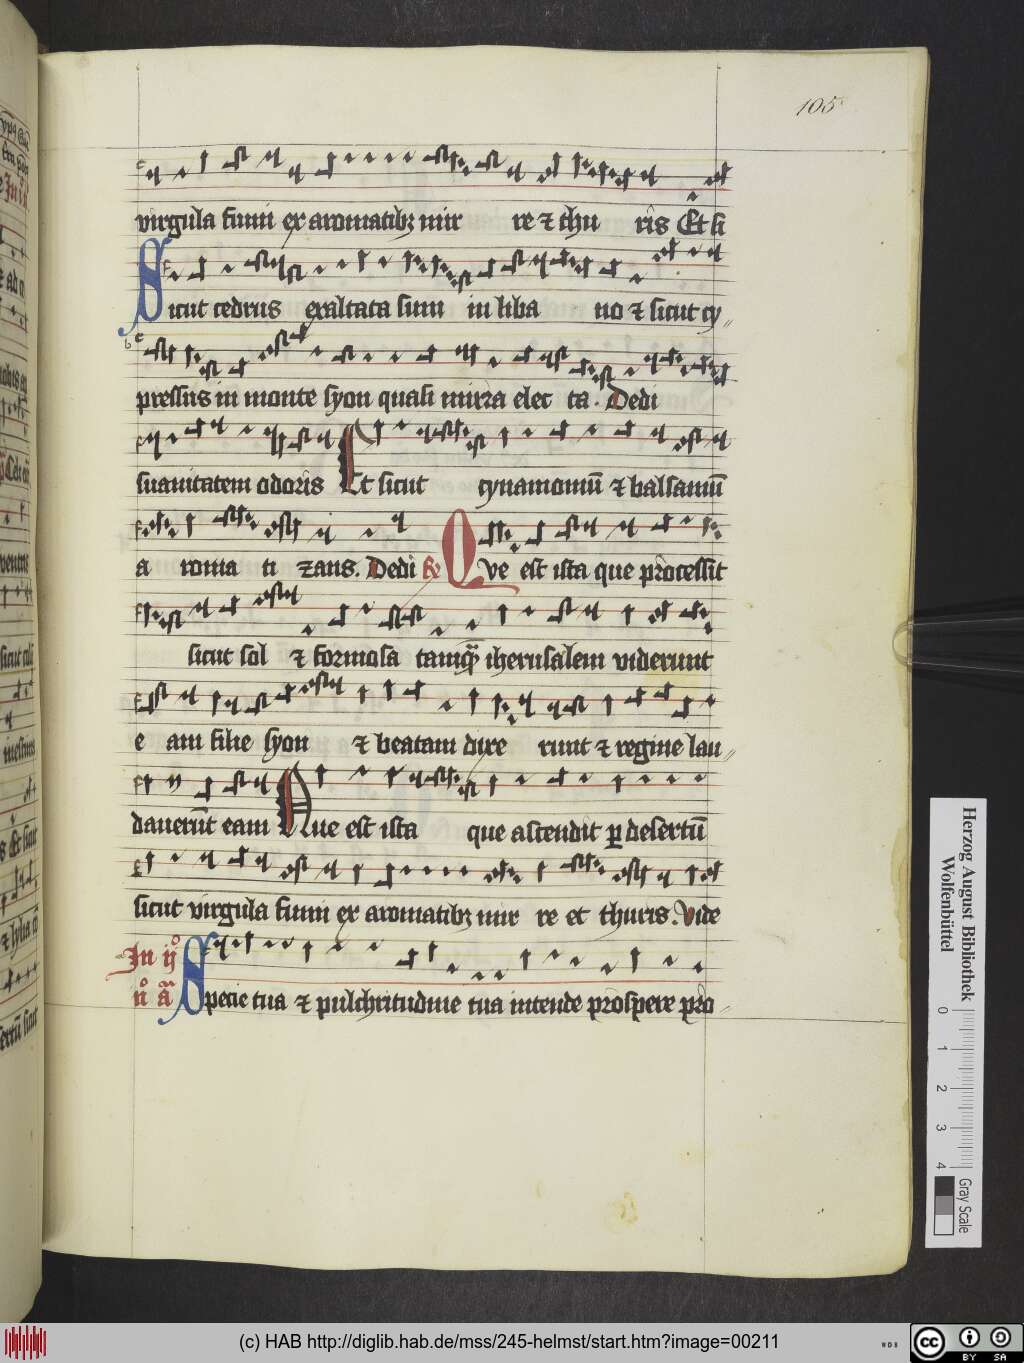 105
virgula fumi ex aromatibꝫ mir re ⁊ thu ris Et si
Sicut cedrus exaltata sum in liba no ⁊ sicut cy
pressus in monte syon quasi mirra elec ta. Dedi
suauitatem odoris Et sicut cynamomū ⁊ balsamū
a roma ti zans. Dedi ℟ Que est ista que processit
sicut sol ⁊ formosa tamqꝫ iherusalem viderunt
e am filie syon ⁊ beatam dixe runt ⁊ regine lau
dauerūt eam Que est ista que ascendit ꝑ desertū
sicut virgula fumi ex aromatibꝫ mir re et thuris. Vide
In ijͦ
nͦ añ Specie tua ⁊ pulchritudine tua intende prospere pro
Herzog August Bibliothek
Wolfenbüttel
0 1 2 3 4
Gray Scale
(c) HAB http://diglib.hab.de/mss/245-helmst/start.htm?image=00211
WDB
cc BY SA